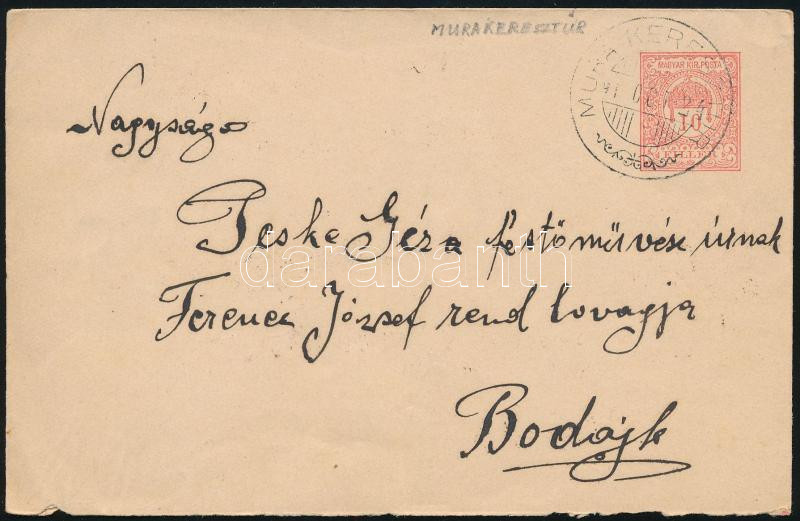 MURAKERESZTÚR
MAGYAR KIR. POSTA
10
Nagyságo
Peske Géza festőművész úrnak
Ferencz József rend lovagja
Bodajk
darabanth